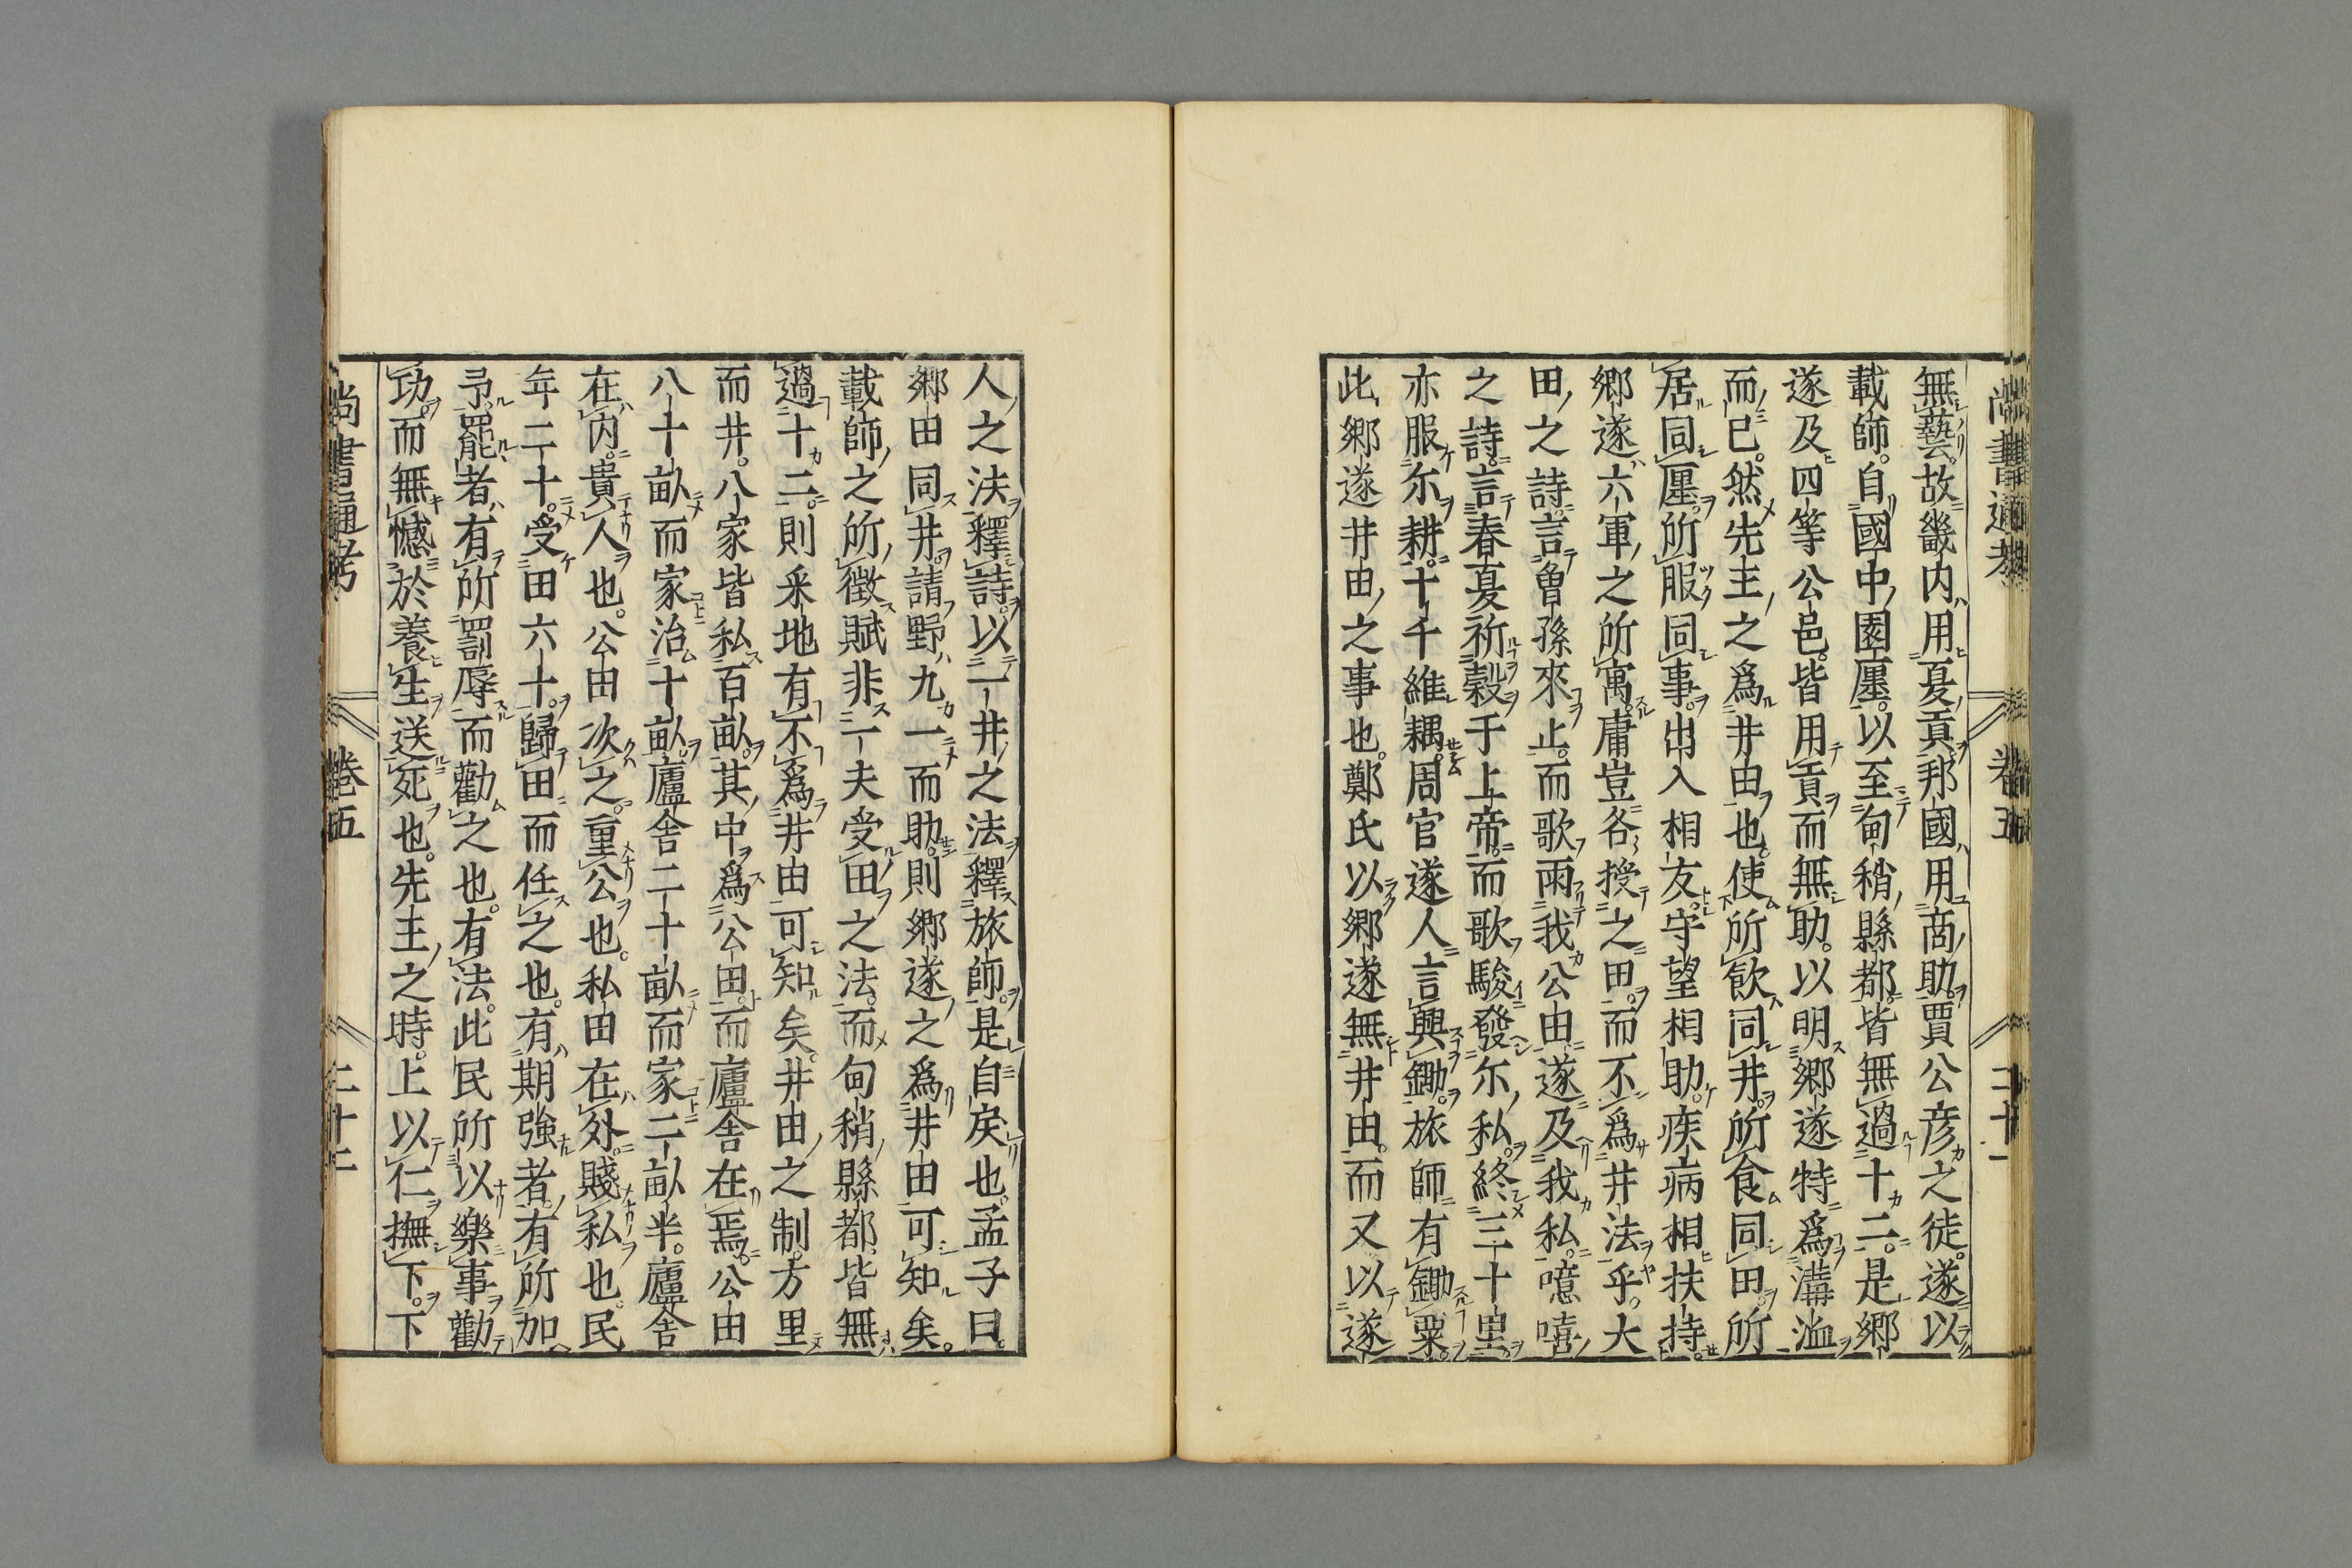 尚書通考 卷五 二十一
無藝故畿内用夏貢邦國用商助賈公彦之徒遂以
載師自國中園廛以至甸稍縣都皆無過十二是郷
遂及四等公邑皆用貢而無助以明郷遂特爲溝洫
而已然先王之爲井田也使所飲同井所食同田所
居同廛所服同事出入相友守望相助疾病相扶持
郷遂六軍之所寓庸豈各授之田而不爲井法乎大
田之詩言曽孫來止而歌雨我公田遂及我私噫嘻
之詩言春夏祈穀于上帝而歌駿發尓私終三十里
亦服尓耕十千維耦周官遂人言興鋤旅師有鋤粟
此郷遂井田之事也鄭氏以郷遂無井田而又以遂
人之法釋詩以一井之法釋旅師是自戾也孟子曰
郷田同井請野九一而助則郷遂之爲井田可知矣
載師之所徴賦非一夫受田之法而甸稍縣都皆無
過十二則采地有不爲井田可知矣井田之制方里
而井八家皆私百畝其中爲公田而廬舎在焉公田
八十畝而家治十畝廬舎二十畝而家二畝半廬舎
在内貴人也公田次之重公也私田在外賤私也民
年二十受田六十歸田而任之也有期強者有所加
予罷者有所罰辱而勸之也有法此民所以樂事勸
功而無憾於養生送死也先王之時上以仁撫下下
尚書通考 卷五 二十二